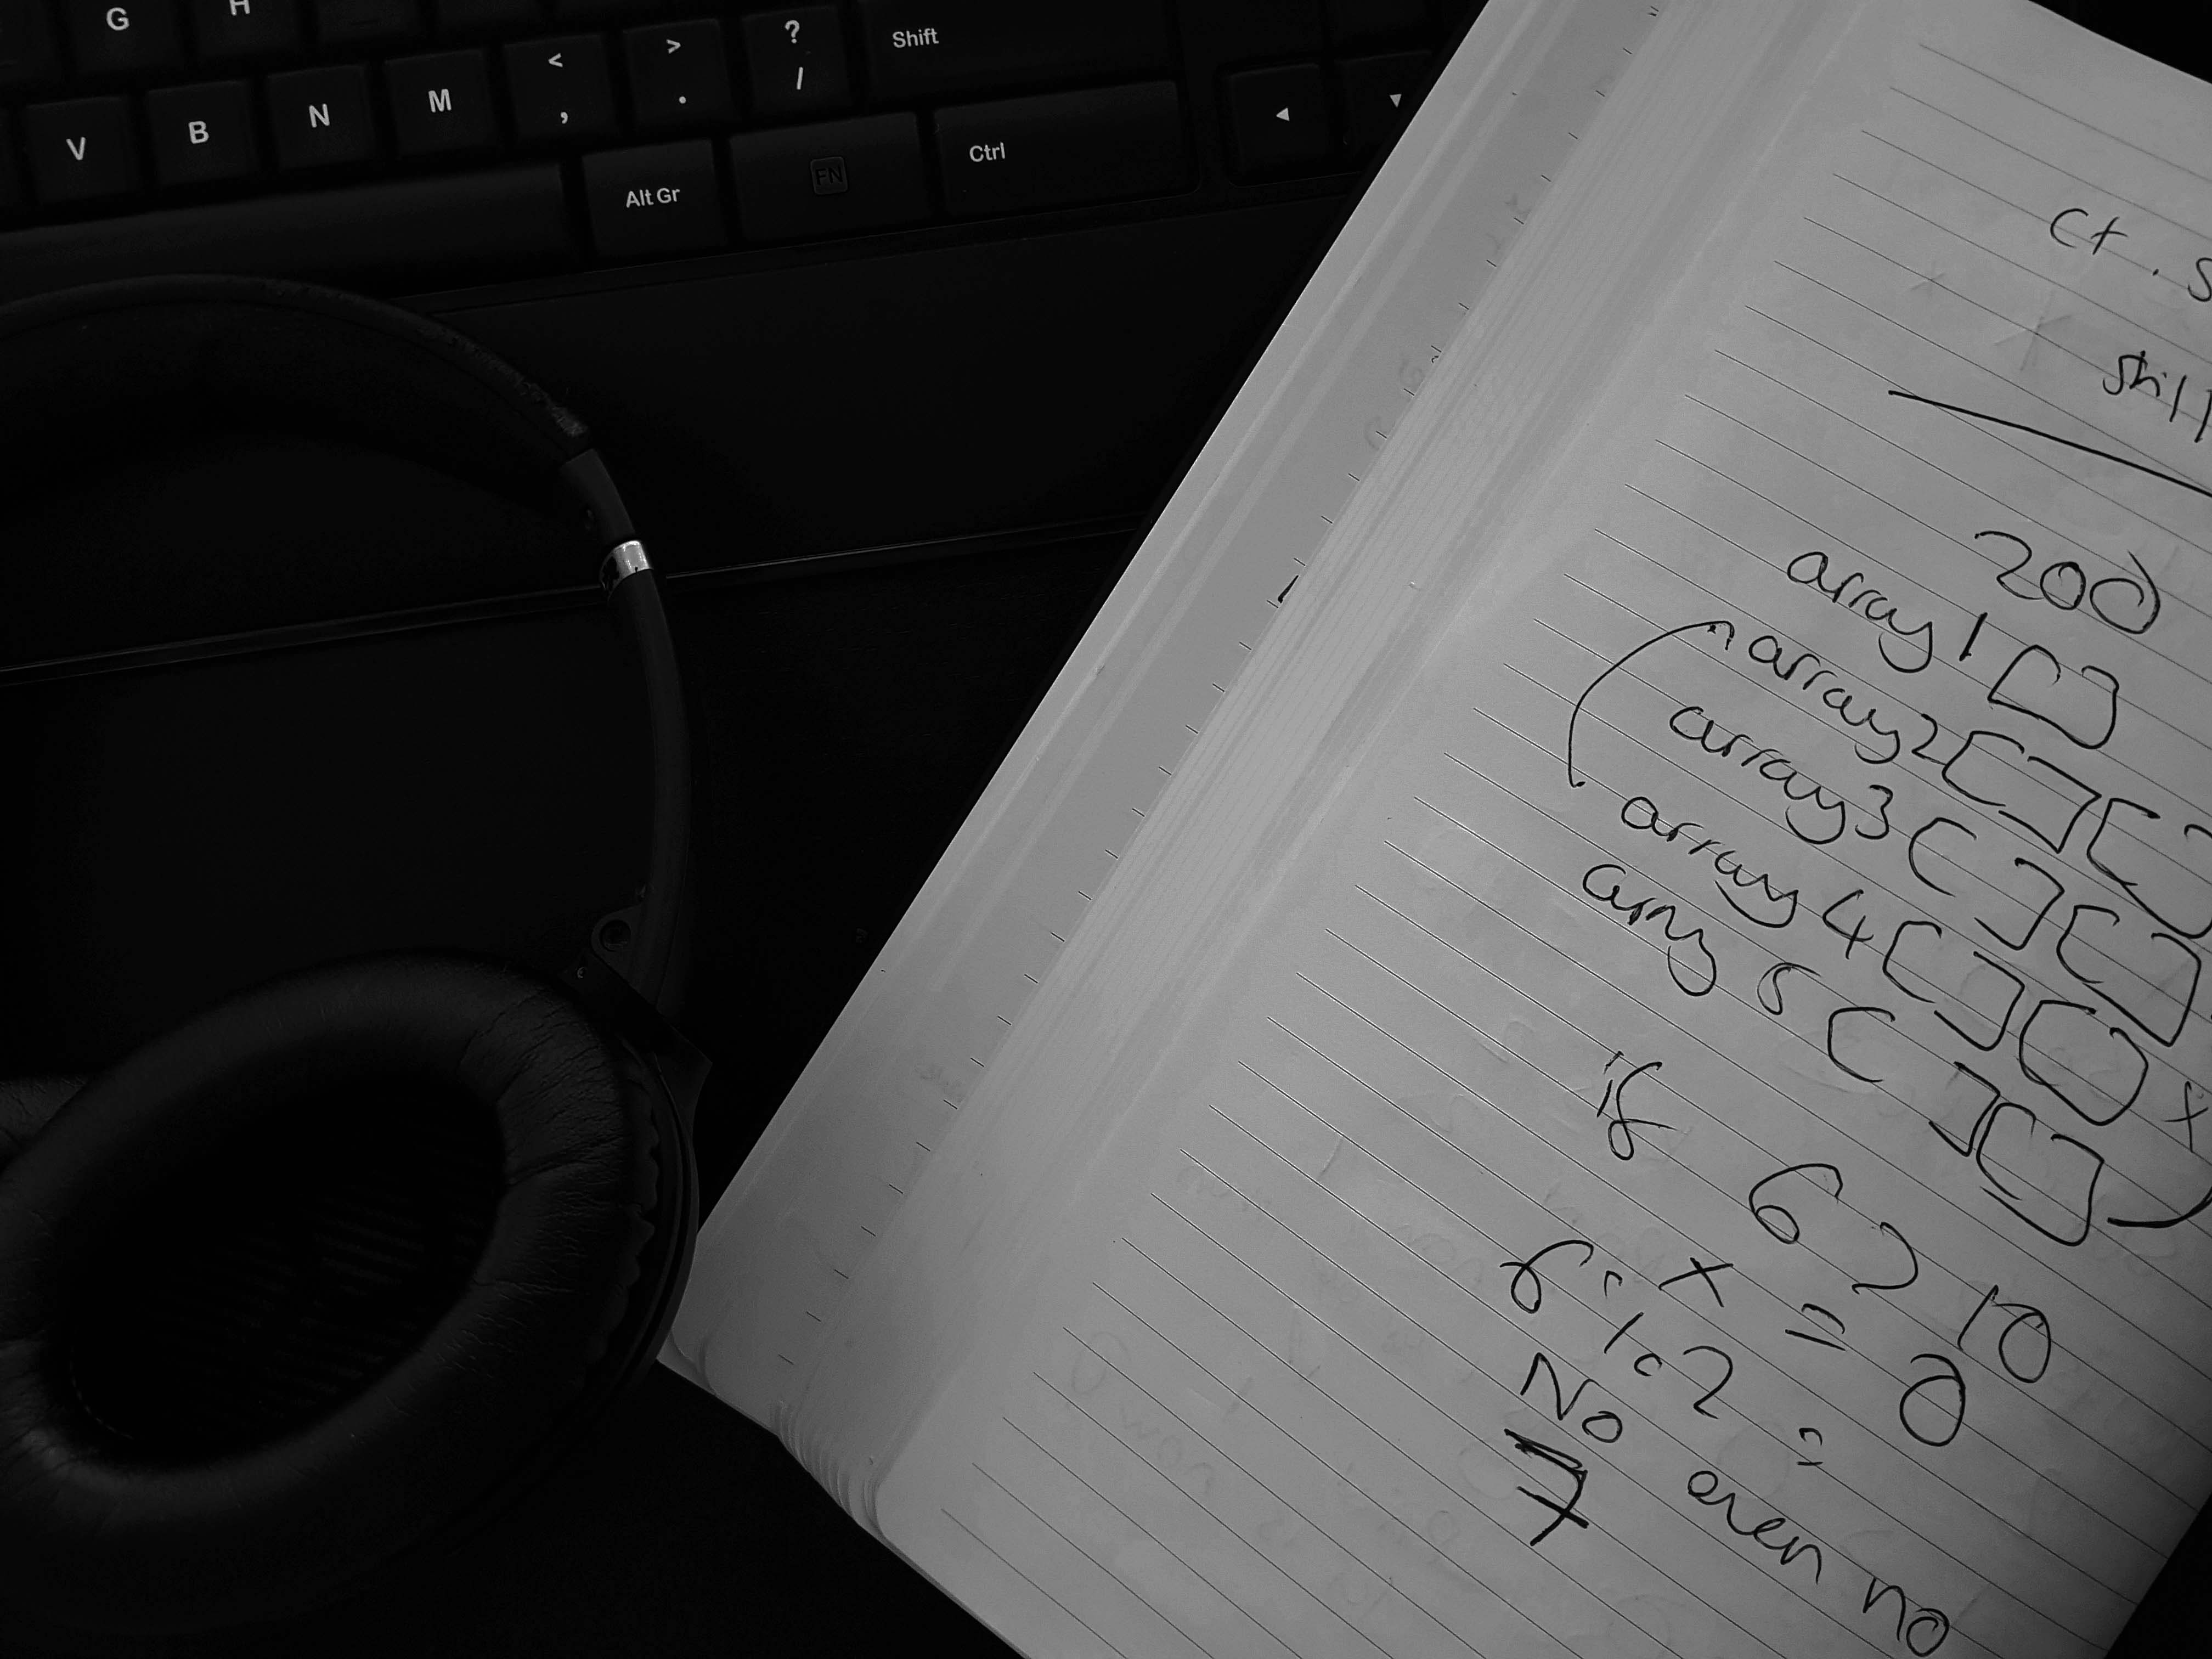 G H
< > ? Shift
V B N M , . /
Alt Gr FN Ctrl
◄ ▼
Ct . S
200
array 1 []
array 2 [] []
array 3 [] []
array 4 [] []
array 5 [] []
if 6 > 10
x = 0
No even no
7